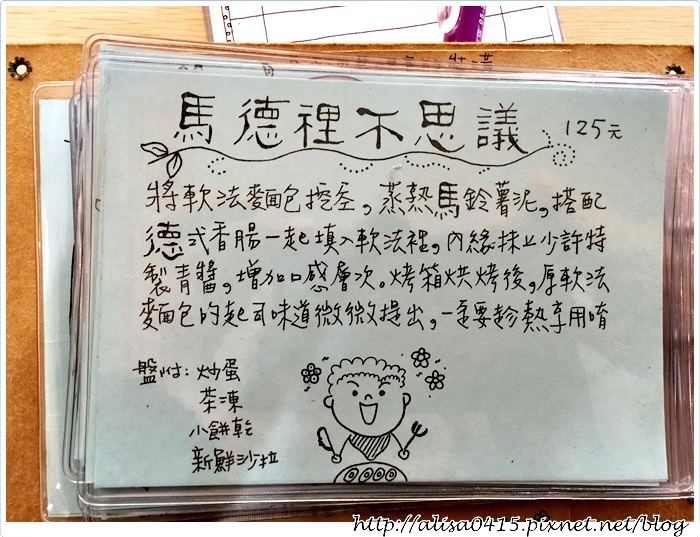 馬德裡不思議 125元
將軟法麵包挖空,蒸熟馬鈴薯泥,搭配
德式香腸一起填入軟法裡,內緣抹上少許特
製青醬,增加口感層次。烤箱烘烤後,厚軟法
麵包的起司味道微微提出,一定要趁熱享用唷
盤附:炒蛋
茶凍
小餅乾
新鮮沙拉
http://alisa0415.pixnet.net/blog